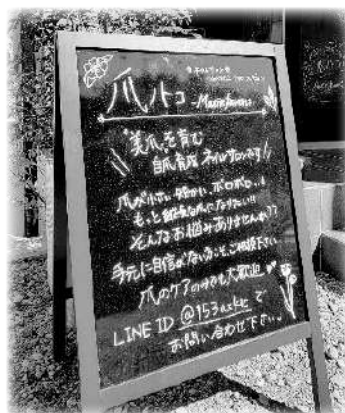 爪ノトコ
美爪を育む
自爪育成ネイルサロンです
爪が小さい ボロボロ
もっと
そんなお悩みありませんか??
手元に自信がない方もご相談下さい
爪のケアのみも大歓迎
LINE ID @153axkc で
お問い合わせ下さい